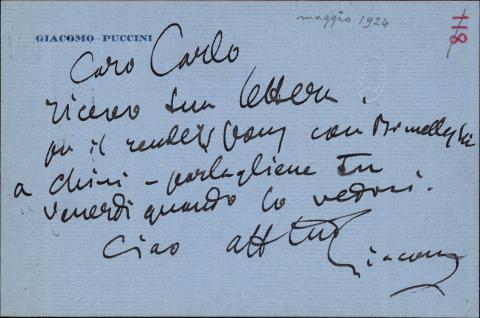 maggio 1924
118
GIACOMO PUCCINI
Caro Carlo
ricevo tua lettera.
per il rendez vous con Brunelleschi
a Chini – parlagliene tu
Venerdì quando lo vedrai.
Ciao aff tuo
Giacomo